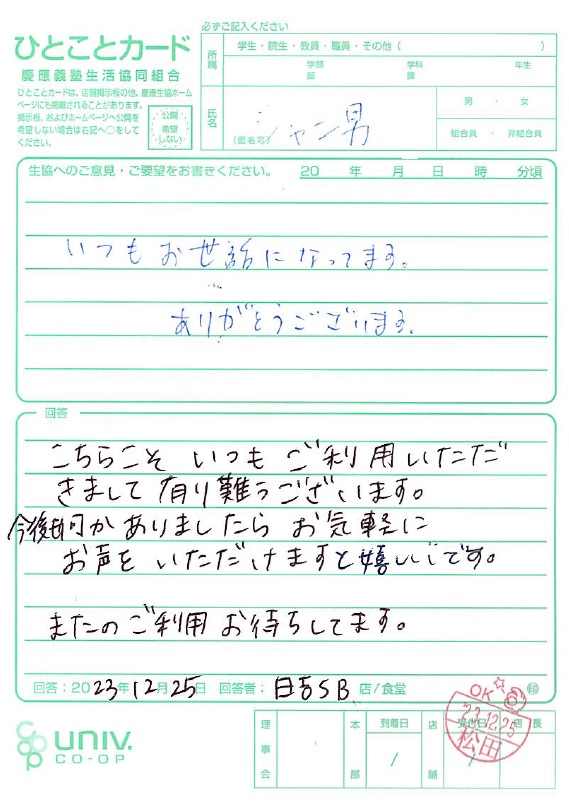 必ずご記入ください
ひとことカード
慶應義塾生活協同組合
ひとことカードは、店舗掲示板の他、慶應生協ホーム
ページにも掲載されることがあります。
掲示板、およびホームページへ公開を
希望しない場合は右記へ○をして
ください。
公開
希望
しない
所属
学生・院生・教員・職員・その他（　　　）
学部　学科　年生
部　課
氏名
(匿名可)
ジャン男
男・女
組合員・非組合員
生協へのご意見・ご要望をお書きください。　20　年　月　日　時　分頃
いつもお世話になってます。
ありがとうございます。
回答
こちらこそ いつも ご利用いただだ
きまして有り難うございます。
今後も何かありましたら お気軽に
お声を いただけますと嬉しいです。
またのご利用 お待ちしてます。
回答：2023年12月25日　回答者：日吉SB 店/食堂
OK
23.12.25
松田
UNIV.
CO-OP
理事会
本部
到着日
/
店舗
受付日
/
店長